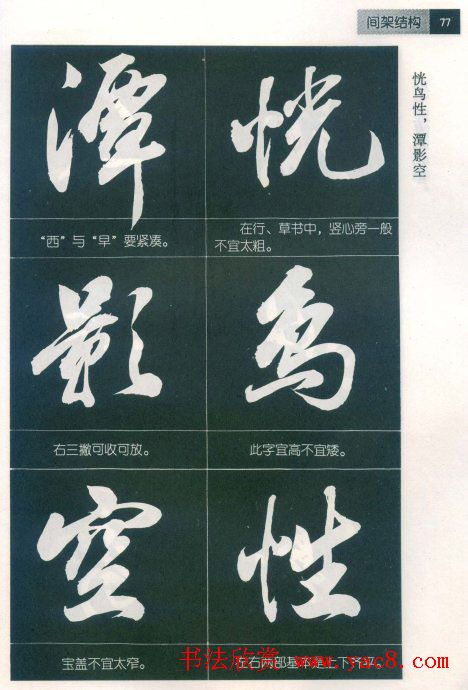 间架结构 77
恍鸟性，潭影空
恍
在行、草书中，竖心旁一般
不宜太粗。
鸟
此字宜高不宜矮。
性
左右两部基本是上下齐平。
潭
“西”与“早”要紧凑。
影
右三撇可收可放。
空
宝盖不宜太窄。
书法欣赏 www.yac8.com